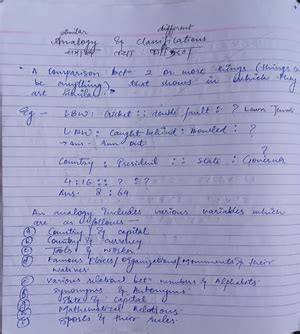 similar different
Analogy & Classifications
A comparison bet- 2 or more things (things can
be anything) that shows in which they
are similar.
Eg - LBW : Cricket :: double fault : ? Lawn Tennis
LBW : Caught behind : Bowled : ?
→ ans - Run out
Country : President :: State : ?
Governor
4 : 16 :: ? : ?
Ans. 8 : 64
An analogy includes various variables which
are as follows -
a Country & capital
b Country & currency
c Tools & worker
d Famous Places/Organizations/Monuments & their
e Various relations bet- numbers & Alphabets.
Synonyms & Antonyms
State & capital
Mathematical Relations
Sports & their rules.